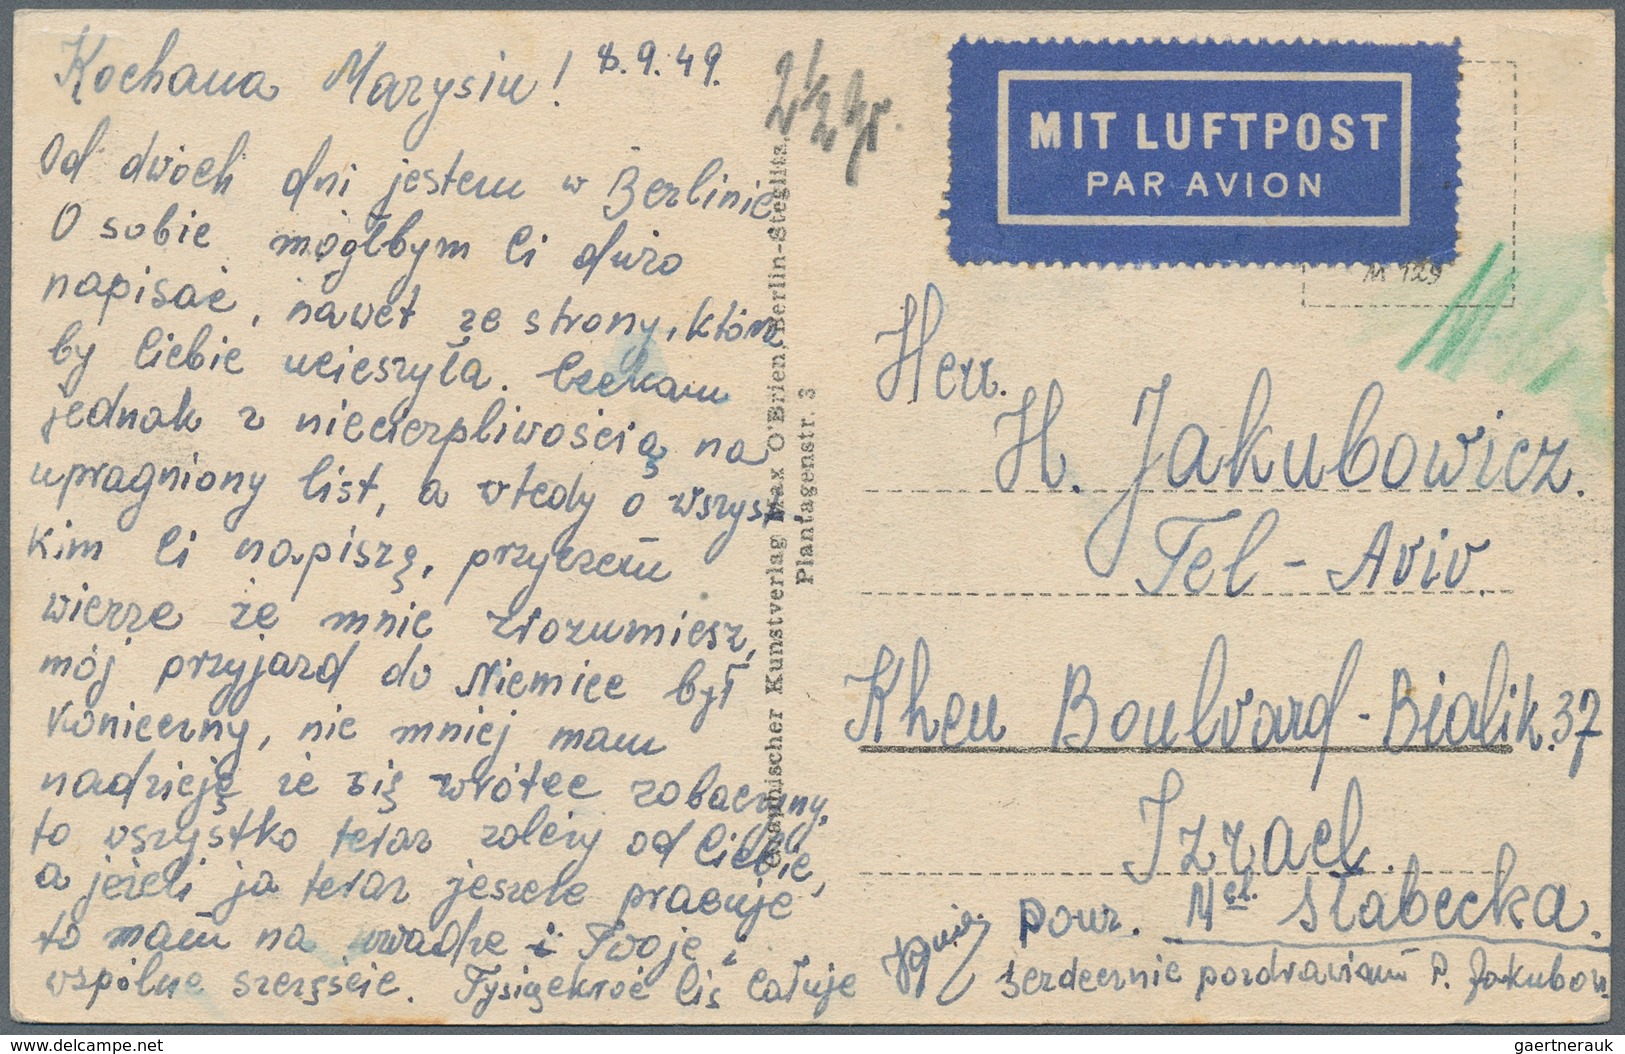 Kochana Marysiu! 8.9.49.
Od dwóch dni jestem w Berlinie
O sobie mógłbym Ci dużo
napisać, nawet ze strony, która
by Ciebie ucieszyła. Czekam
jednak z niecierpliwością na
upragniony list, a wtedy o wszyst-
kim Ci napiszę, przyczem
wierzę że mnie zrozumiesz,
mój przyjazd do Niemiec był
konieczny, nie mniej mam
nadzieję że się wrótce zobaczymy,
to wszystko teraz zależy od Ciebie,
a jeżeli ja teraz jeszcze pracuje
to mam na uwadze i Twoje i
wspólne szczęście. Tysiąckroć Cię całuje
Graphischer Kunstverlag Max O'Brien, Berlin-Steglitz,
Plantagenstr. 3
MIT LUFTPOST
PAR AVION
M 129
Herr.
H. Jakubowicz.
Tel-Aviv
Khen Boulvard-Bialik.37
Izrael.
pour. Mel. Słabecka.
Serdecznie pozdrawiam P. Jakubow.
gaertnerauk